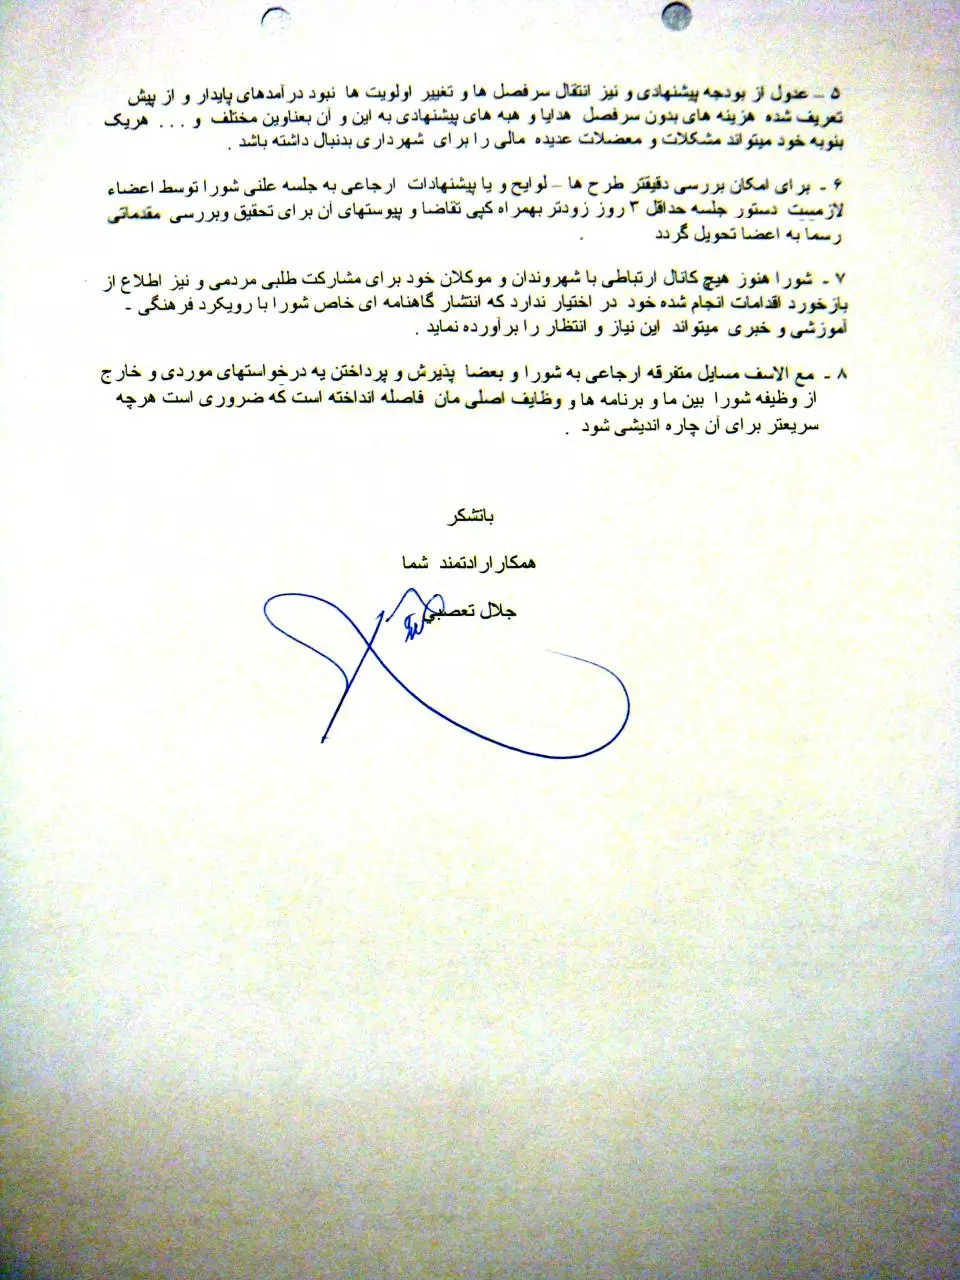 ۵ – عدول از بودجه پیشنهادی و نیز انتقال سرفصل ها و تغییر اولویت ها نبود درآمدهای پایدار و از پیش
تعریف شده هزینه های بدون سرفصل هدایا و هبه های پیشنهادی به این و آن بعناوین مختلف و ... هریک
بنوبه خود میتواند مشکلات و معضلات عدیده مالی را برای شهرداری بدنبال داشته باشد .
۶ - برای امکان بررسی دقیقتر طرح ها – لوایح و یا پیشنهادات ارجاعی به جلسه علنی شورا توسط اعضاء
لازمست دستور جلسه حداقل ۳ روز زودتر بهمراه کپی تقاضا و پیوستهای آن برای تحقیق وبررسی مقدماتی
رسما به اعضا تحویل گردد .
۷ - شورا هنوز هیچ کانال ارتباطی با شهروندان و موکلان خود برای مشارکت طلبی مردمی و نیز اطلاع از
بازخورد اقدامات انجام شده خود در اختیار ندارد که انتشار گاهنامه ای خاص شورا با رویکرد فرهنگی -
آموزشی و خبری میتواند این نیاز و انتظار را برآورده نماید .
۸ - مع الاسف مسایل متفرقه ارجاعی به شورا و بعضا پذیرش و پرداختن یه درخواستهای موردی و خارج
از وظیفه شورا بین ما و برنامه ها و وظایف اصلی مان فاصله انداخته است که ضروری است هرچه
سریعتر برای آن چاره اندیشی شود .
باتشکر
همکارارادتمند شما
جلال تعصبي